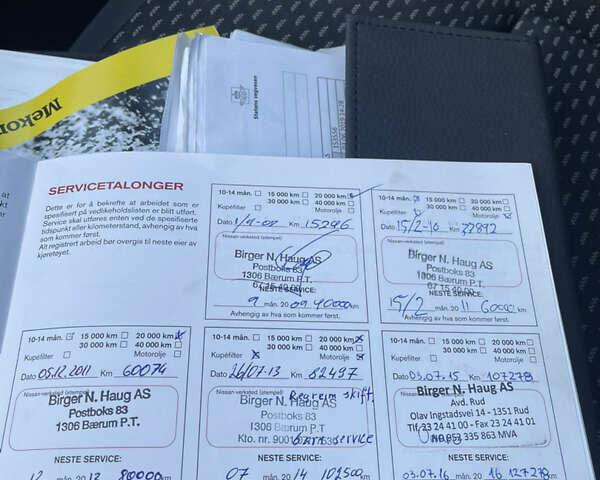 Mekon
Statens vegvesen
SERVICETALONGER
Dette er for å bekrefte at arbeidet som er
spesifisert på vedlikeholdslisten er blitt utført.
Service skal utføres enten ved de spesifiserte
tidspunkt eller kilometerstand, avhengig av hva
som kommer først.
Alt registrert arbeid bør overgis til neste eier av
kjøretøyet.
10-14 mån. 15 000 km 20 000 km
30 000 km 40 000 km
Kupéfilter Motorolje
Dato Km 15296
Nissan-verksted (stempel)
Birger N. Haug AS
Postboks 83
1306 Bærum P.T.
67 15 40 00
NESTE SERVICE:
9 mån. 20 09 40000 km
Avhengig av hva som kommer først.
10-14 mån. 15 000 km 20 000 km
30 000 km 40 000 km
Kupéfilter Motorolje
Dato 15/2-10 Km 37892
Nissan-verksted (stempel)
Birger N. Haug AS
Postboks 83
1306 Bærum P.T.
67 15 40 00
NESTE SERVICE:
15/2 mån. 20 11 60000 km
Avhengig av hva som kommer først.
10-14 mån. 15 000 km 20 000 km
30 000 km 40 000 km
Kupéfilter Motorolje
Dato 05.12.2011 Km 60074
Nissan-verksted (stempel)
Birger N. Haug AS
Postboks 83
1306 Bærum P.T.
NESTE SERVICE:
12 mån. 20 12 80000 km
10-14 mån. 15 000 km 20 000 km
30 000 km 40 000 km
Kupéfilter Motorolje
Dato 26/07.13 Km 82497
Nissan-verksted (stempel)
Birger N. Haug AS
Postboks 83
1306 Bærum P.T.
Kto. nr. 9001
Regreim skift.
service
NESTE SERVICE:
07 mån. 20 14 102500 km
10-14 mån. 15 000 km 20 000 km
30 000 km 40 000 km
Kupéfilter Motorolje
Dato 03.07.15 Km 107278
Nissan-verksted (stempel)
Birger N. Haug AS
Avd. Rud
Olav Ingstadsvei 14 - 1351 Rud
Tlf. 23 24 41 00 - Fax 23 24 41 01
Org. no 952 335 863 MVA
NESTE SERVICE:
03.07.16 mån. 20 16 127278 km